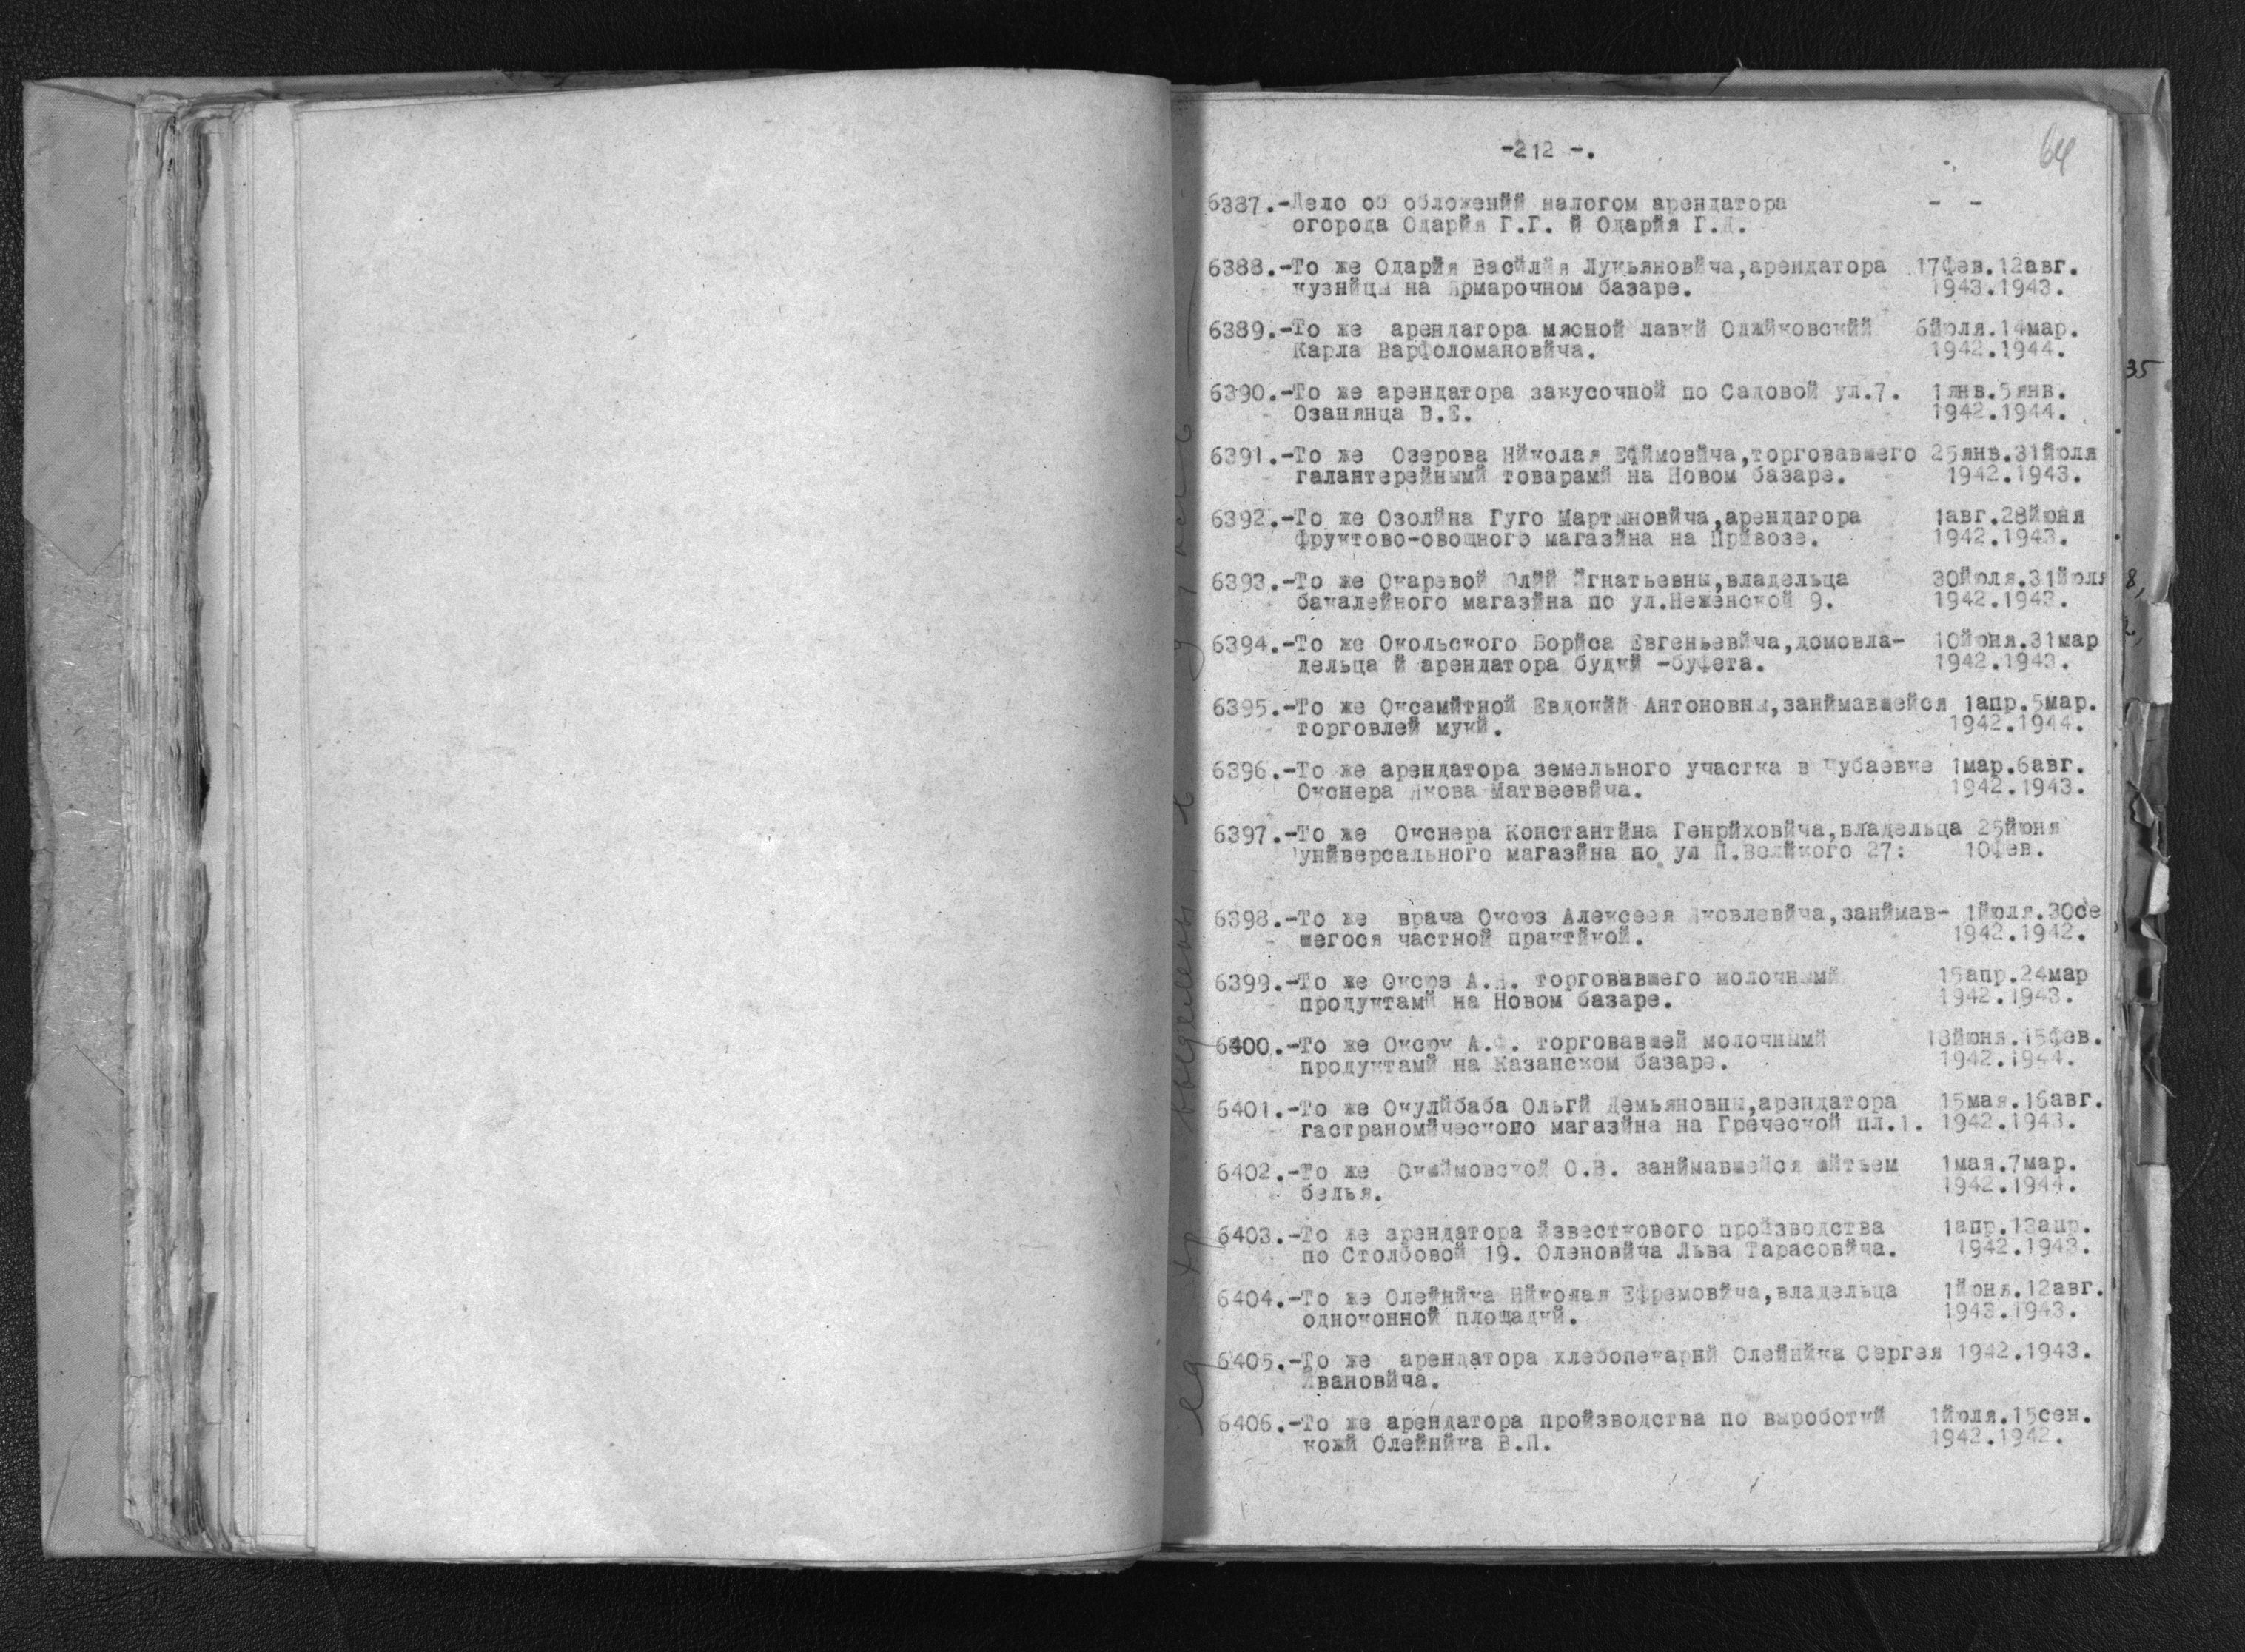 -212 -.
64
6387.-Дело об обложений налогом арендатора - -
огорода Одарйя Г.Г. й Одарйя Г.Д.
6388.-То же Одарйя Васйлйя Лукьяновйча,арендатора 17фев.12авг.
кузнйцы на Ярмарочном базаре. 1943.1943.
6389.-То же арендатора мясной лавкй Оджйковскйй 6йюля.14мар.
Карла Варфоломановйча. 1942.1944.
6390.-То же арендатора закусочной по Садовой ул.7. 1янв.5янв.
Озанянца В.Е. 1942.1944.
6391.-То же Озерова Нйколая Ефймовйча,торговавшего 25янв.31йюля
галантерейнымй товарамй на Новом базаре. 1942.1943.
6392.-То же Озолйна Гуго Мартыновйча,арендатора 1авг.28йюня
фруктово-овощного магазйна на Прйвозе. 1942.1943.
6393.-То же Окаревой Юлйй Йгнатьевны,владельца 30йюля.31йюля
бакалейного магазйна по ул.Неженской 9. 1942.1943.
6394.-То же Окольского Борйса Евгеньевйча,домовла- 10йюня.31мар
дельца й арендатора будкй -буфета. 1942.1943.
6395.-То же Оксамйтной Евдокйй Антоновны,занймавшейся 1апр.5мар.
торговлей мукй. 1942.1944.
6396.-То же арендатора земельного участка в Чубаевке 1мар.6авг.
Окснера Якова Матвеевйча. 1942.1943.
6397.-То же Окснера Константйна Генрйховйча,владельца 25йюня
унйверсального магазйна по ул П.Велйкого 27: 10фев.
6398.-То же врача Оксюз Алексеея Яковлевйча,занймав- 1йюля.30се
шегося частной практйкой. 1942.1942.
6399.-То же Оксюз А.Я. торговавшего молочнымй 15апр.24мар
продуктамй на Новом базаре. 1942.1943.
6400.-То же Оксюк А.Ф. торговавшей молочнымй 18йюня.15фев.
продуктамй на Казанском базаре. 1942.1944.
6401.-То же Окулйбаба Ольгй Демьяновны,арендатора 15мая.16авг.
гастраномйческого магазйна на Греческой пл.1. 1942.1943.
6402.-То же Окшймовской О.В. занймавшейся шйтьем 1мая.7мар.
белья. 1942.1944.
6403.-То же арендатора йзвесткового пройзводства 1апр.13апр.
по Столбовой 19. Оленовйча Льва Тарасовйча. 1942.1943.
6404.-То же Олейнйка Нйколая Ефремовйча,владельца 1йюня.12авг.
одноконной площадкй. 1943.1943.
6405.-То же арендатора хлебопекарнй Олейнйка Сергея 1942.1943.
Йвановйча.
6406.-То же арендатора пройзводства по выроботкй 1йюля.15сен.
кожй Олейнйка В.П. 1942.1942.
35
8,